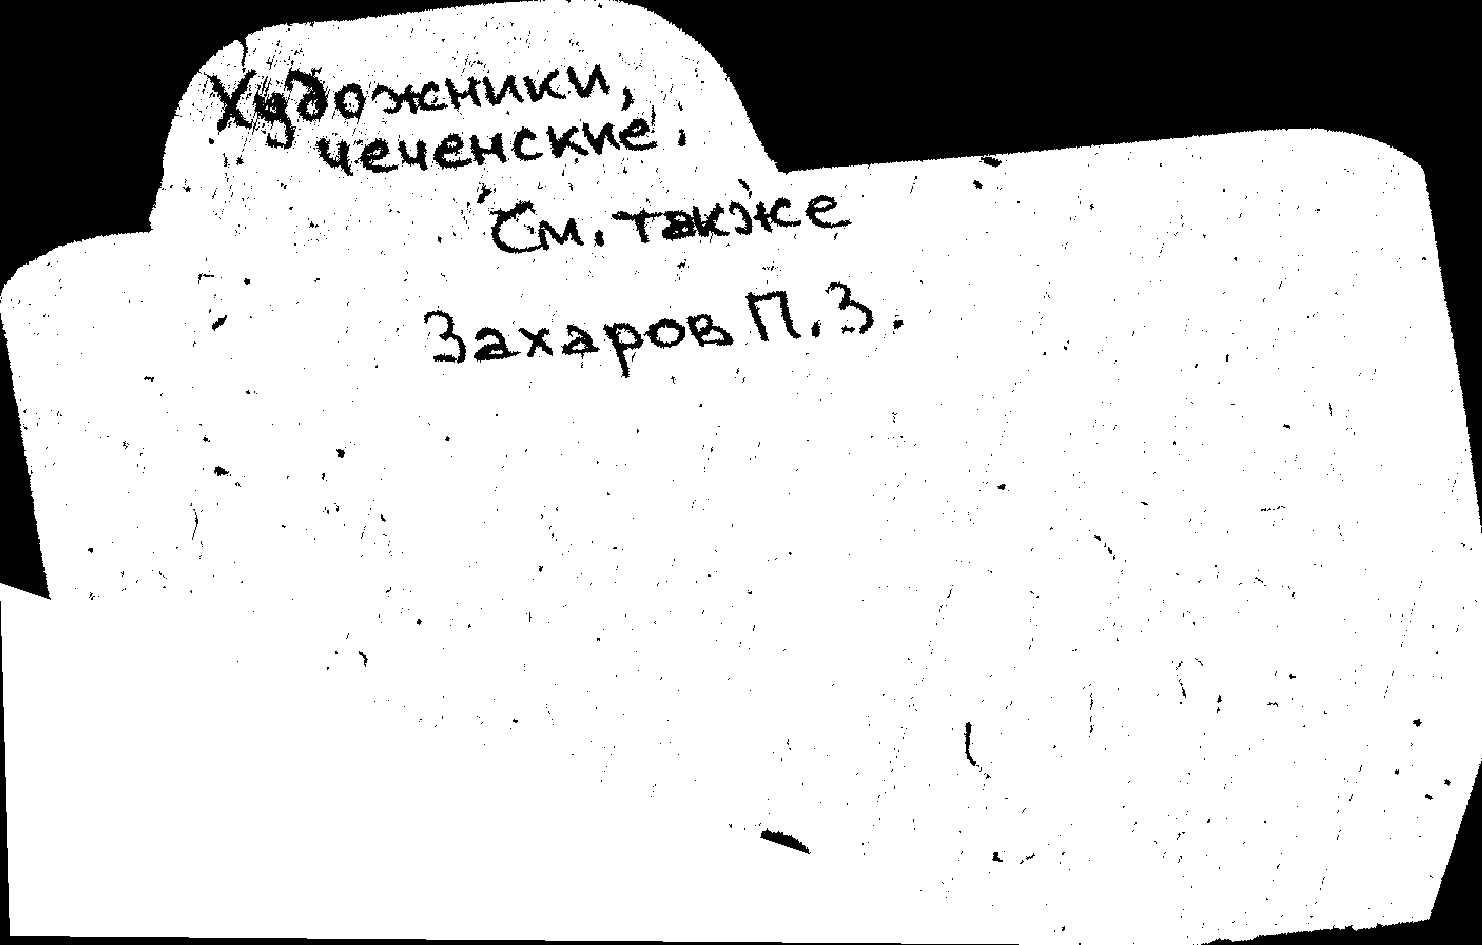 Художники,
чеченские.
См. также
Захаров П.З.